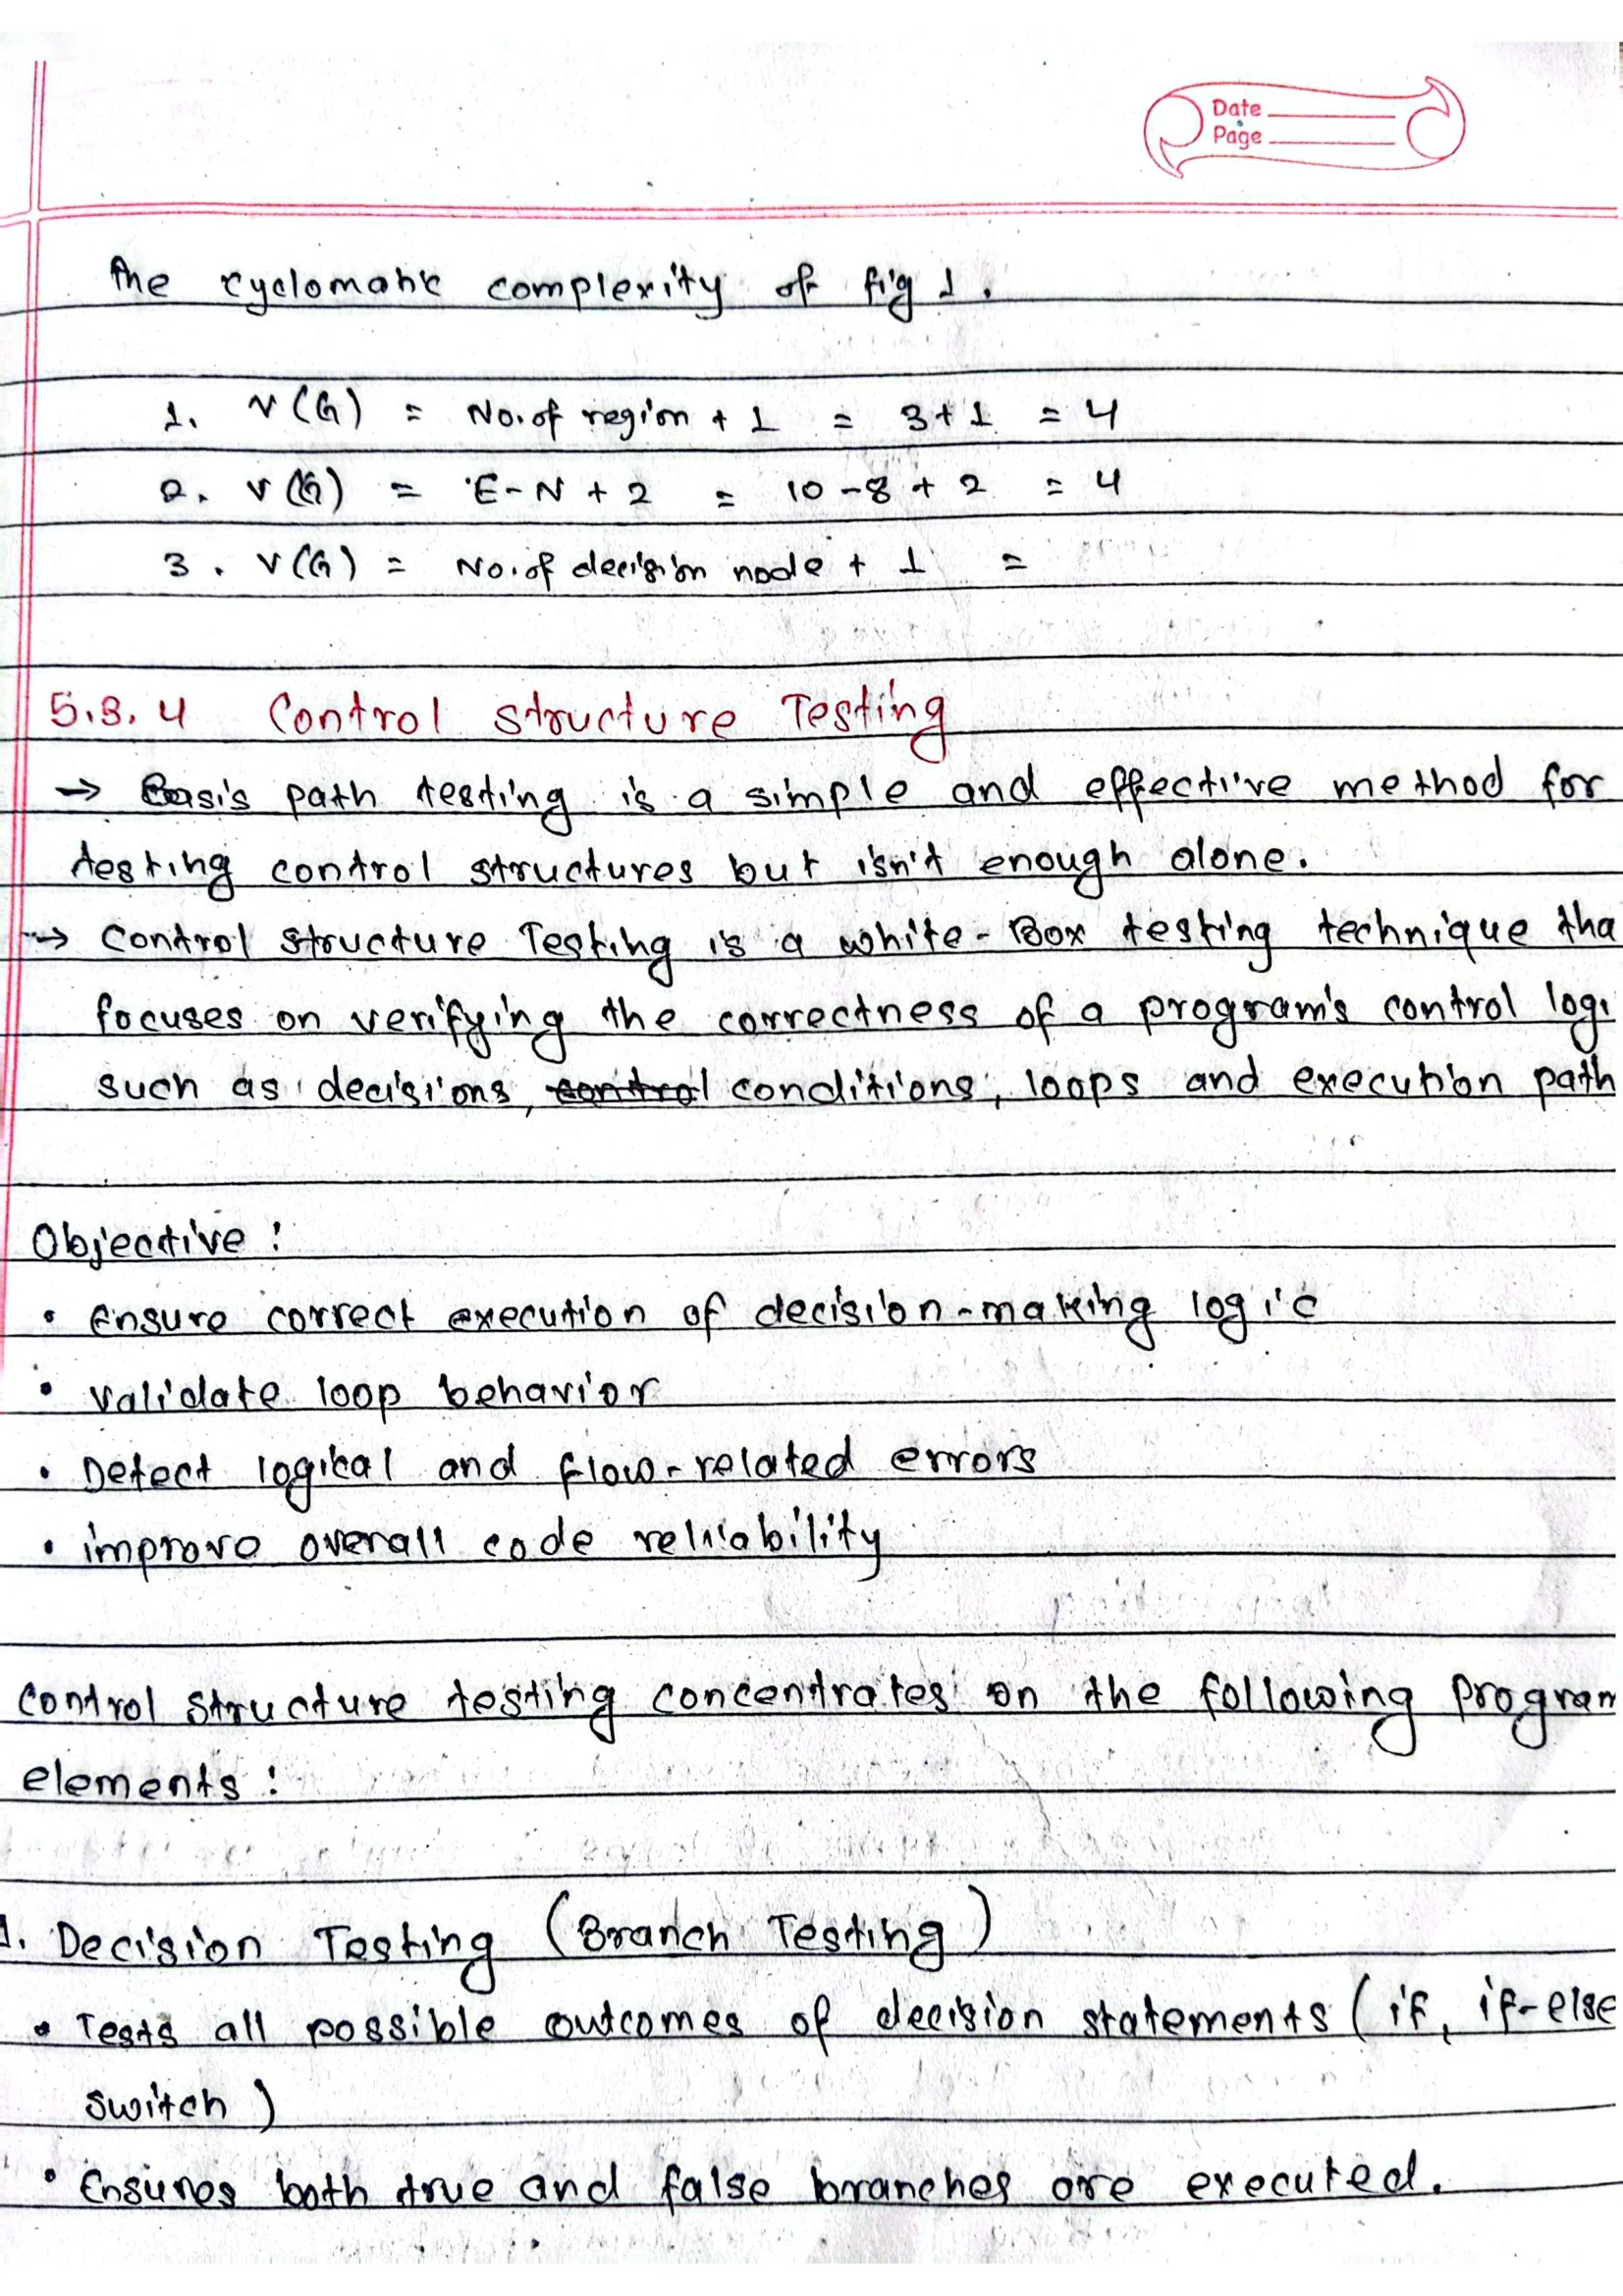 Date
Page
The cyclomatic complexity of fig 1.
1. V(G) = No. of region + 1 = 3+1 = 4
2. V(G) = E-N + 2 = 10-8 + 2 = 4
3. V(G) = No. of decision node + 1 =
5.3.4 Control Structure Testing
→ Basis path testing is a simple and effective method for
testing control structures but isn't enough alone.
→ Control Structure Testing is a white-Box testing technique tha
focuses on verifying the correctness of a program's control logi
such as decisions, control conditions, loops and execution path
Objective :
• Ensure correct execution of decision-making logic
• Validate loop behavior
• Detect logical and flow-related errors
• improve overall code reliability
Control Structure testing concentrates on the following program
elements :
1. Decision Testing (Branch Testing)
• Tests all possible outcomes of decision statements (if, if-else
switch)
• Ensures both true and false branches are executed.